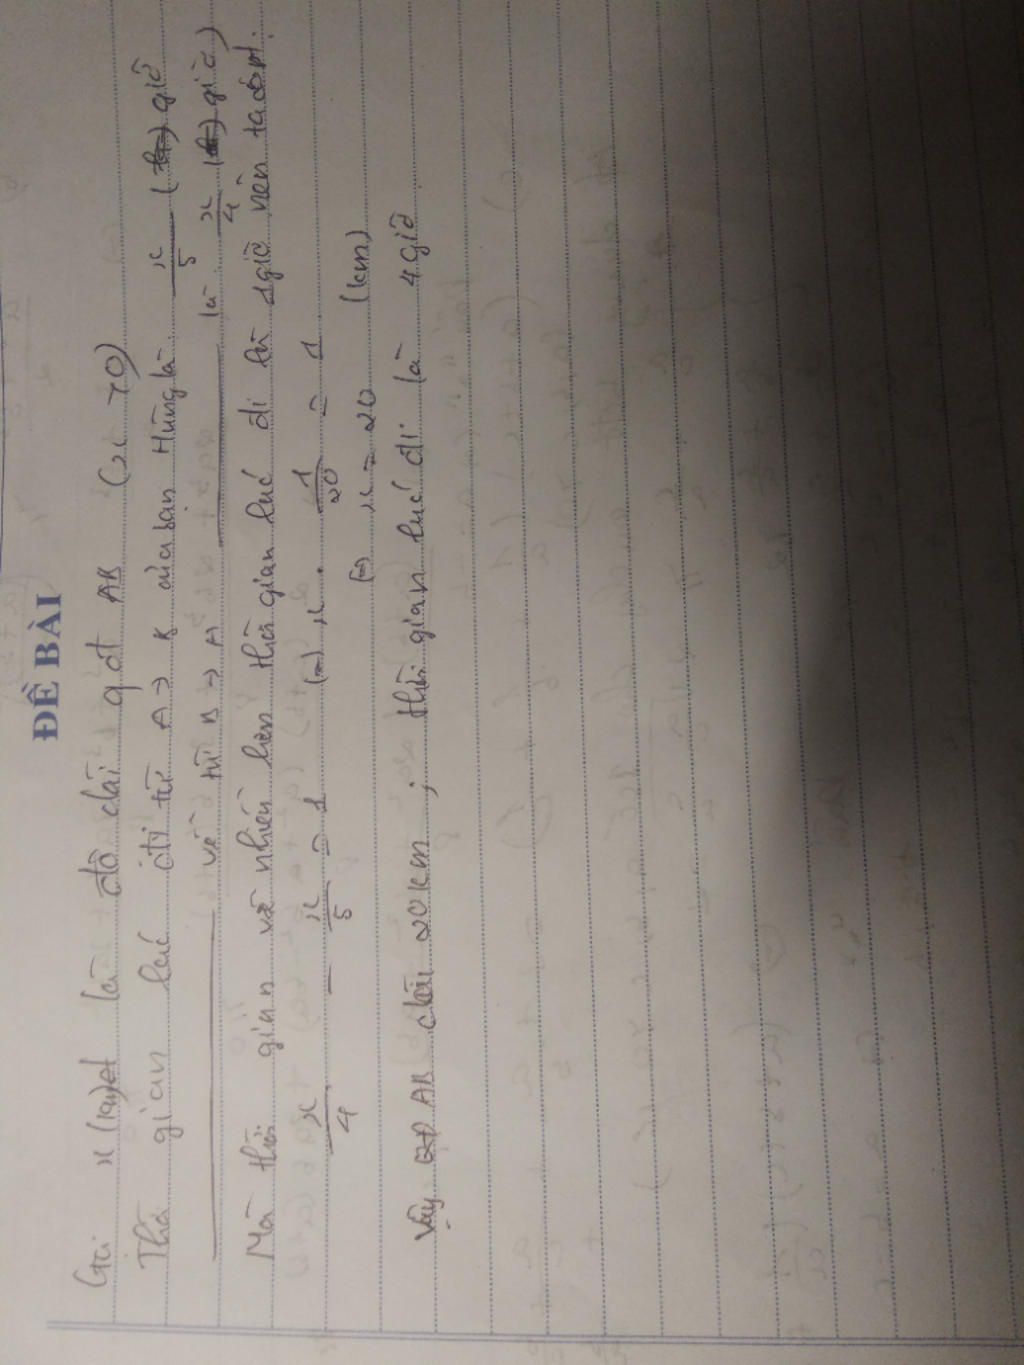 ĐỀ BÀI
Gọi x (km) là độ dài qđ AB (x > 0)
Thời gian lúc đi từ A → B của bạn Hùng là x/5 (giờ)
về từ B → A là x/4 (giờ)
Mà thời gian về nhiều hơn thời gian lúc đi là 1 giờ nên ta có pt:
x/4 - x/5 = 1 (=) x . 1/20 = 1
(=) x = 20 (km)
Vậy QĐ AB dài 20 km ; thời gian lúc đi là 4 giờ